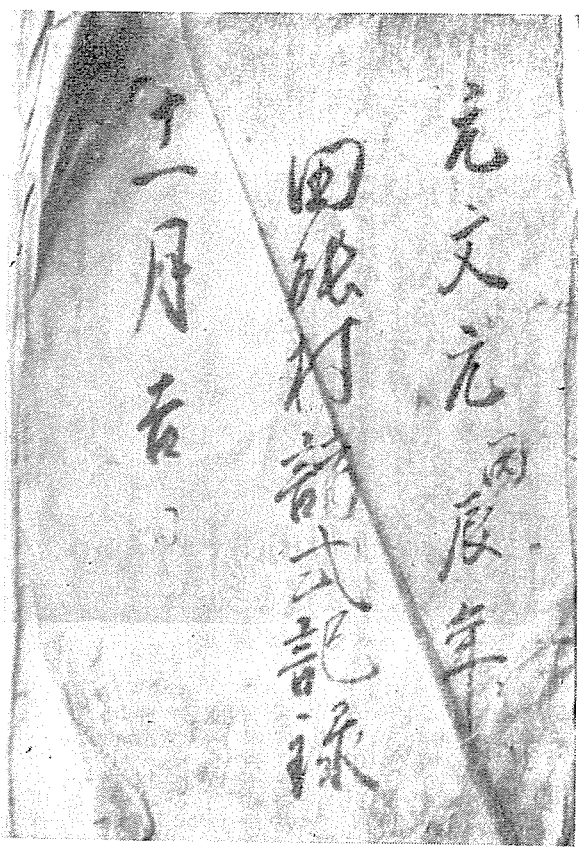 元文元丙辰年
田能村諸式記録
十一月吉日